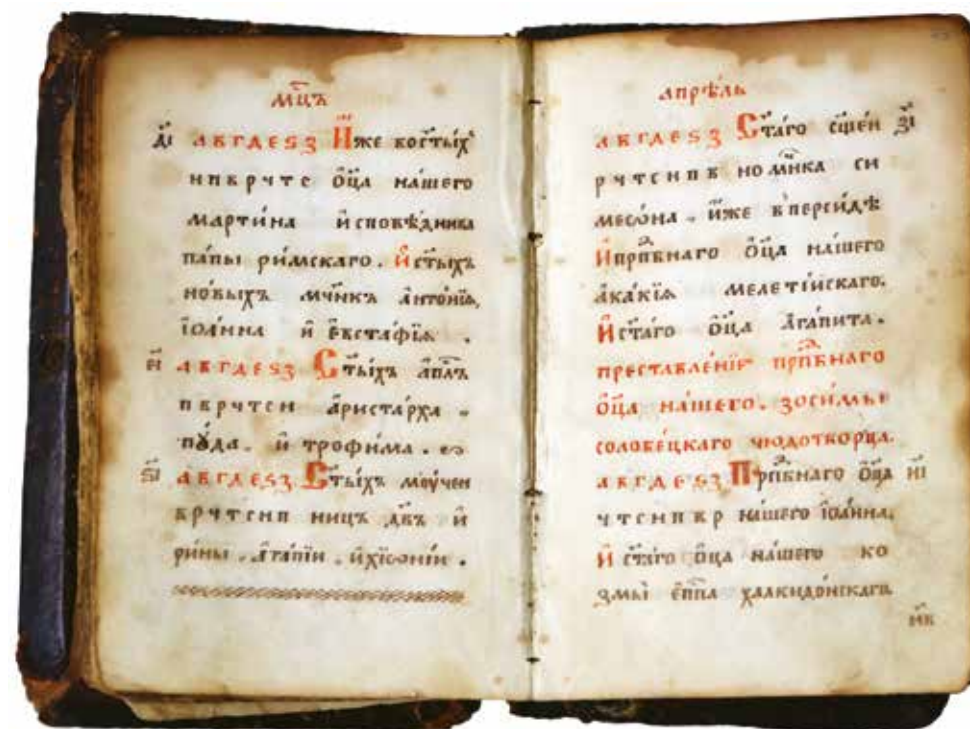 мц҃ъ
д҃і а в г д е ѕ з И҆́же во ст҃ы́хъ
н п в р ч т с ѻ҆ц҃а̀ на́шего
марти́на и҆сповѣ́дника
па́пы ри́мскаго. и҆ ст҃ы́хъ
но́выхъ мч҃нкъ а҆нто́нїѧ,
і҆ѡа́нна и҆ е҆ѵста́фїѧ .
є҃і а в г д е ѕ з Ст҃ы́хъ а҆пл҃ъ
п в р ч т с н а҆риста́рха .
пꙋ́да. и҆ трофи́ма .
ѕ҃і а в г д е ѕ з Ст҃ы́хъ моучен
в р ч т с н п ницъ дв҃ъ и҆
ри́ны . а҆га́пїи . и҆ хїѡ́нїи .
апрѣ́ль
а в г д е ѕ з Ст҃а́го сщ҃ен з҃і
р ч т с н п в номч҃нка си
месѡ́на . и҆́же в персі́дѣ
И҆ прпⷣбнаго ѻ҆ц҃а̀ на́шего
а҆ка́кїѧ мелеті́йскаго.
И҆ ст҃а́го ѻ҆ц҃а̀ а҆гапи́та .
преставле́нїе прпⷣбнаго
ѻ҆ц҃а̀ на́шего. зоси́мы
солове́цкаго чюдотво́рца.
а в г д е ѕ з Прпⷣбнаго ѻ҆ц҃а̀ и҃і
ч т с н п в р на́шего і҆ѡа́нна.
И҆ ст҃а́го ѻ҆ц҃а̀ на́шего ко
змы̀ е҆пⷭ҇па халкидо́нскагѡ